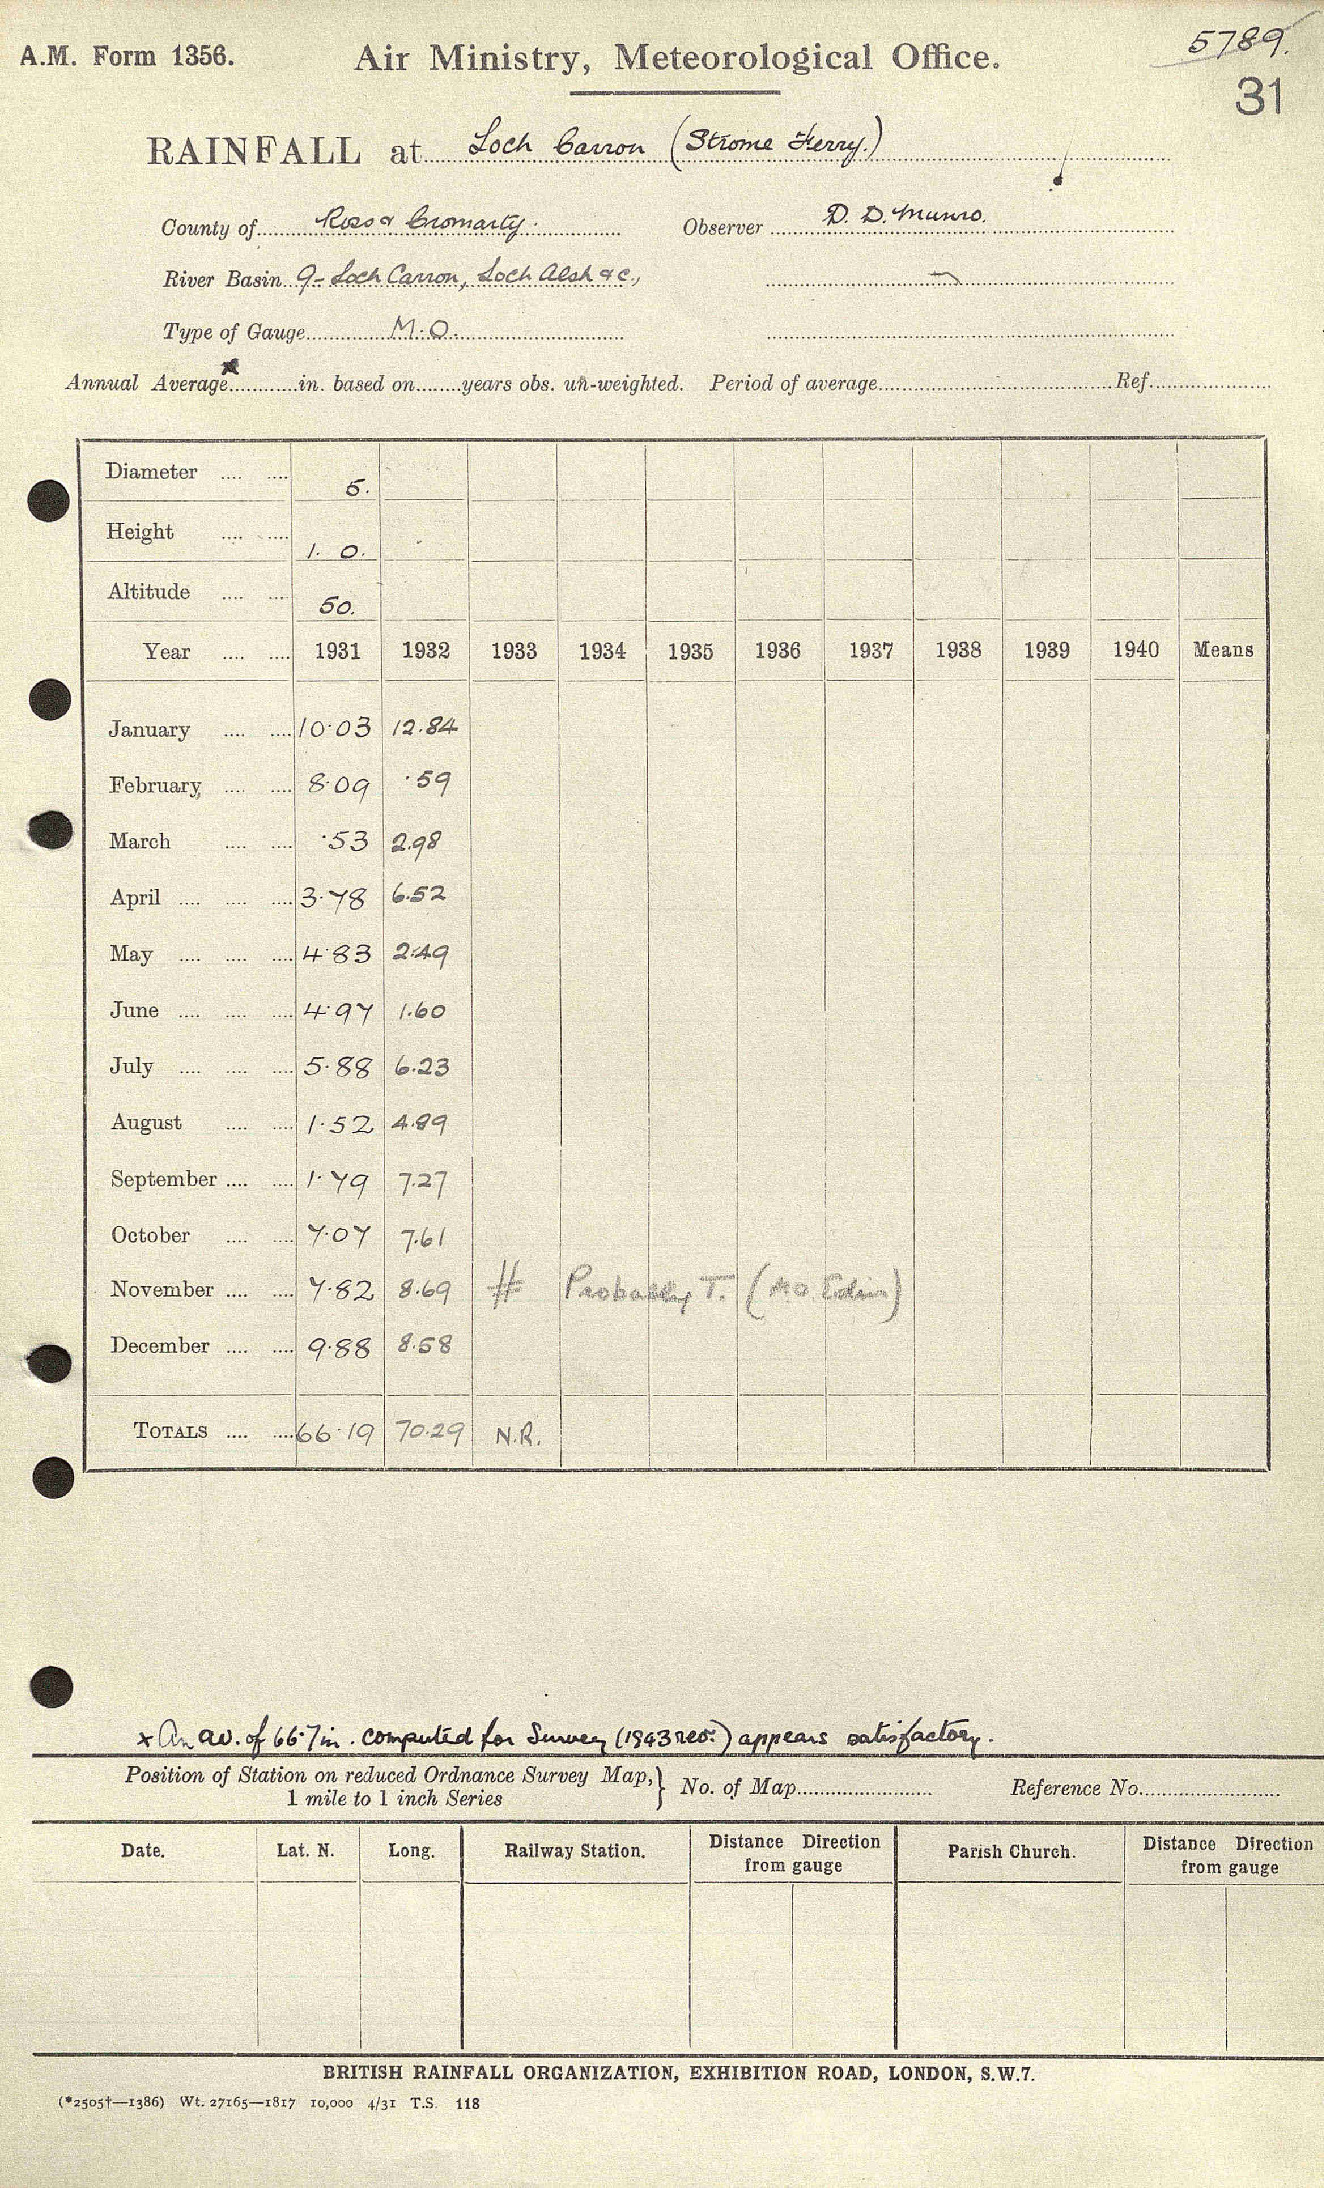 A.M. Form 1356.
Air Ministry, Meteorological Office.
5789.
31
RAINFALL at Loch Carron (Strome Ferry.)
County of Ross & Cromarty. Observer D. D. Munro.
River Basin 9 - Loch Carron, Loch Alsh &c.,
Type of Gauge M.O.
Annual Average x in. based on years obs. un-weighted. Period of average Ref.
Diameter 5.
Height 1. 0.
Altitude 50.
Year 1931 1932 1933 1934 1935 1936 1937 1938 1939 1940 Means
January 10.03 12.84
February 8.09 .59
March .53 2.98
April 3.78 6.52
May 4.83 2.49
June 4.97 1.60
July 5.88 6.23
August 1.52 4.89
September 1.79 7.27
October 7.07 7.61
November 7.82 8.69 # Probably T. (MO Edin)
December 9.88 8.58
TOTALS 66.19 70.29 N.R.
x An av. of 66.7 in. computed for Survey (1943 reo.) appears satisfactory.
Position of Station on reduced Ordnance Survey Map, 1 mile to 1 inch Series } No. of Map Reference No.
Date. Lat. N. Long. Railway Station. Distance Direction from gauge Parish Church. Distance Direction from gauge
BRITISH RAINFALL ORGANIZATION, EXHIBITION ROAD, LONDON, S.W.7.
(*2505†—1386) Wt. 27165—1817 10,000 4/31 T.S. 118